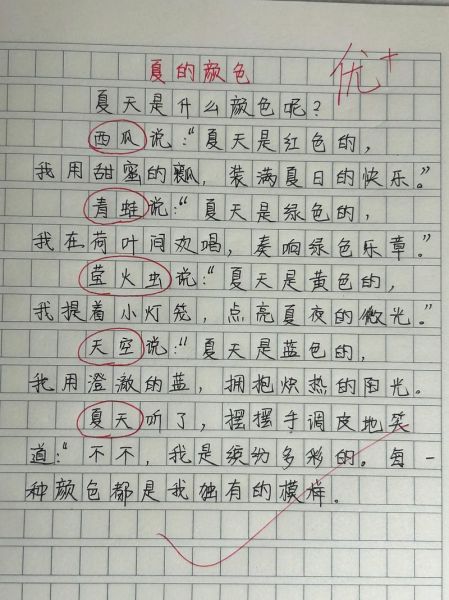 夏的颜色
优+
夏天是什么颜色呢？
西瓜说："夏天是红色的，
我用甜蜜的瓤，装满夏日的快乐。"
青蛙说："夏天是绿色的，
我在荷叶间欢唱，奏响绿色乐章。"
萤火虫说："夏天是黄色的，
我提着小灯笼，点亮夏夜的微光。"
天空说："夏天是蓝色的，
我用澄澈的蓝，拥抱炽热的阳光。
夏天听了，摆摆手调皮地笑
道："不不，我是缤纷多彩的。每一
种颜色都是我独有的模样。